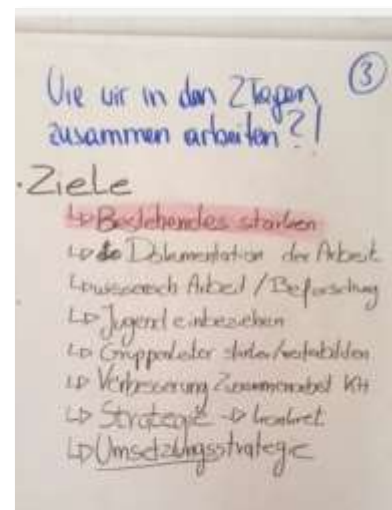 3
Wie wir in den 2 Tagen
zusammen arbeiten?!
· Ziele
↳ Bestehendes stärken
↳ Dokumentation der Arbeit
↳ wissensch Arbeit / Beforschung
↳ Jugend einbeziehen
↳ Gruppenleiter stärken/weiterbilden
↳ Verbesserung Zusammenarbeit KH
↳ Strategie → konkret
↳ Umsetzungsstrategie